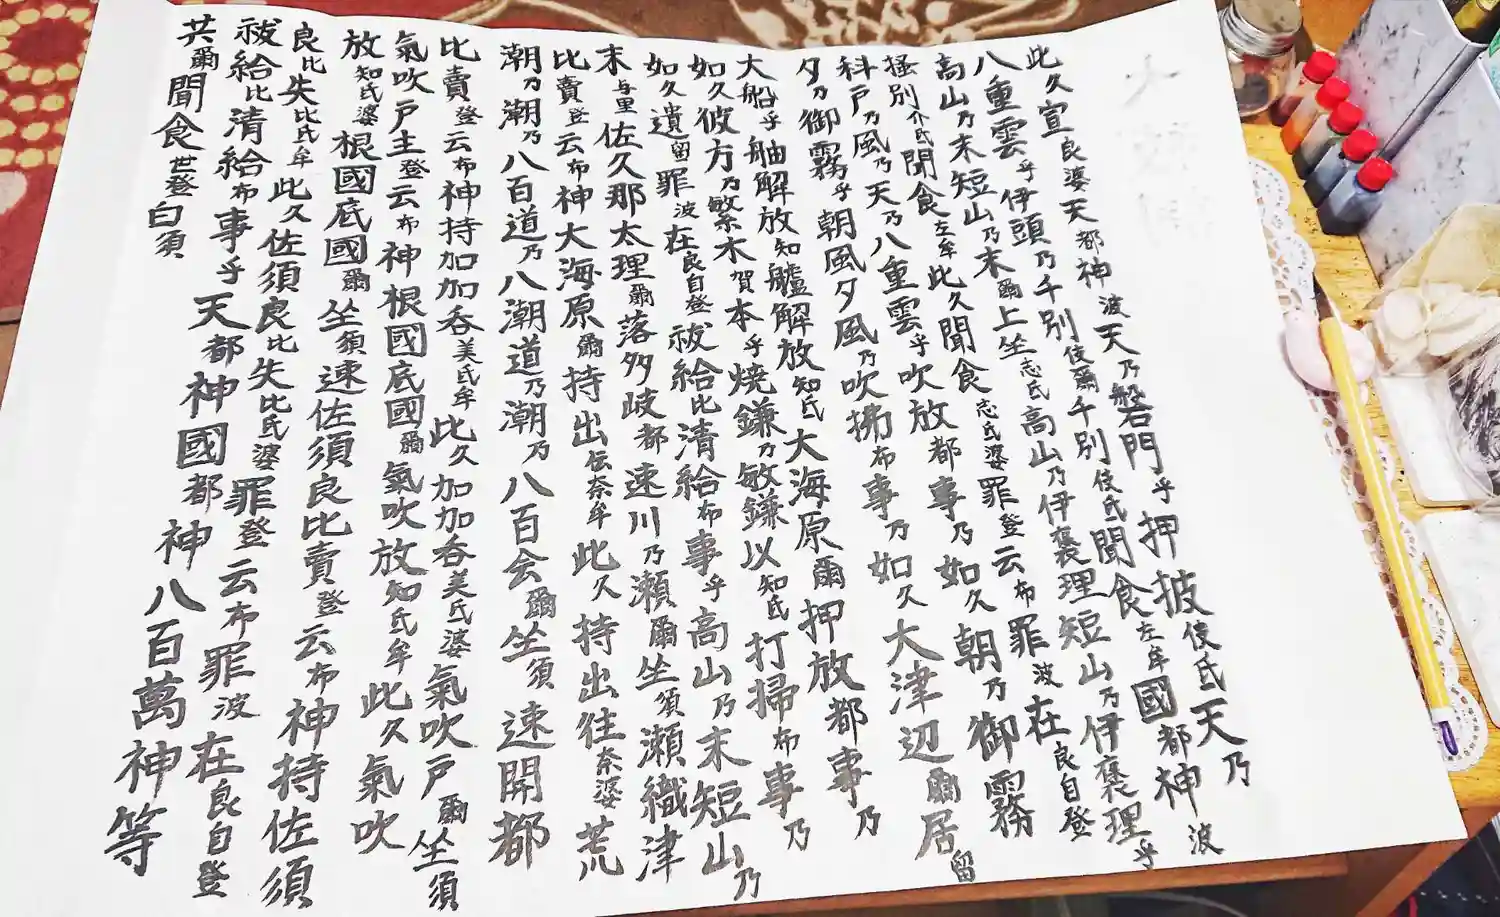 此久宣良婆天都神波天乃磐門乎押披伎氐天乃
八重雲乎伊頭乃千別伎爾千別伎氐聞食左牟國都神波
高山乃末短山乃末爾上坐志氐高山乃伊褒理短山乃伊褒理乎
掻別介氐聞食左牟此久聞食志氐婆罪登云布罪波在良自登
科戸乃風乃天乃八重雲乎吹放都事乃如久朝乃御霧
夕乃御霧乎朝風夕風乃吹拂布事乃如久大津辺爾居留
大船乎舳解放知艫解放知氐大海原爾押放都事乃
如久彼方乃繁木賀本乎焼鎌乃敏鎌以知氐打掃布事乃
如久遺留罪波在良自登祓給比清給布事乎高山乃末短山乃
末与里佐久那太理爾落多岐都速川乃瀬爾坐須瀬織津
比賣登云布神大海原爾持出伝奈牟此久持出往奈婆荒
潮乃潮乃八百道乃八潮道乃潮乃八百会爾坐須速開都
比賣登云布神持加加呑美氐牟此久加加呑美氐婆氣吹戸爾坐須
氣吹戸主登云布神根國底國爾氣吹放知氐牟此久氣吹
放知氐婆根國底國爾坐須速佐須良比賣登云布神持佐須
良比失比氐牟此久佐須良比失比氐婆罪登云布罪波在良自登
祓給比清給布事乎天都神國都神八百萬神等
共爾聞食世登白須